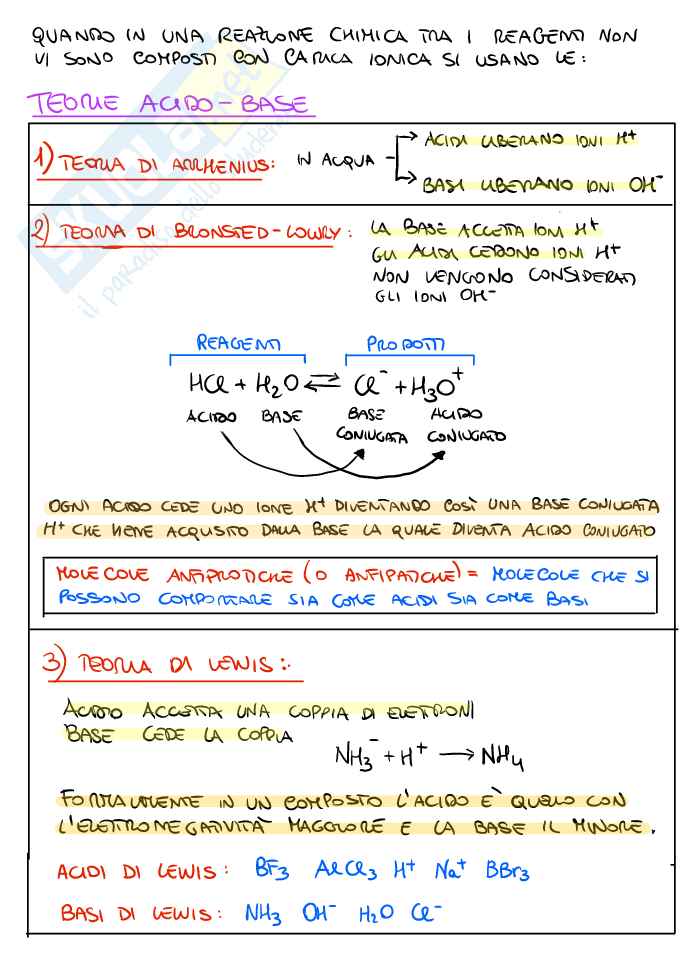 QUANDO IN UNA REAZIONE CHIMICA TRA I REAGENTI NON
VI SONO COMPOSTI CON CARICA IONICA SI USANO LE:
TEORIE ACIDO-BASE
1) TEORIA DI ARRHENIUS: IN ACQUA
ACIDI LIBERANO IONI H⁺
BASI LIBERANO IONI OH⁻
2) TEORIA DI BRONSTED-LOWRY: LA BASE ACCETTA IONI H⁺
GLI ACIDI CEDONO IONI H⁺
NON VENGONO CONSIDERATI
GLI IONI OH⁻
REAGENTI PRODOTTI
HCl + H₂O ⇌ Cl⁻ + H₃O⁺
ACIDO BASE BASE CONIUGATA ACIDO CONIUGATO
OGNI ACIDO CEDE UNO IONE H⁺ DIVENTANDO COSÌ UNA BASE CONIUGATA
H⁺ CHE VIENE ACQUISITO DALLA BASE LA QUALE DIVENTA ACIDO CONIUGATO
MOLECOLE ANFIPROTICHE (O ANFIPATICHE) = MOLECOLE CHE SI
POSSONO COMPORTARE SIA COME ACIDI SIA COME BASI
3) TEORIA DI LEWIS:
ACIDO ACCETTA UNA COPPIA DI ELETTRONI
BASE CEDE LA COPPIA
NH₃⁻ + H⁺ → NH₄
FORMALMENTE IN UN COMPOSTO L'ACIDO È QUELLO CON
L'ELETTRONEGATIVITÀ MAGGIORE E LA BASE IL MINORE.
ACIDI DI LEWIS: BF₃ AlCl₃ H⁺ Na⁺ BBr₃
BASI DI LEWIS: NH₃ OH⁻ H₂O Cl⁻